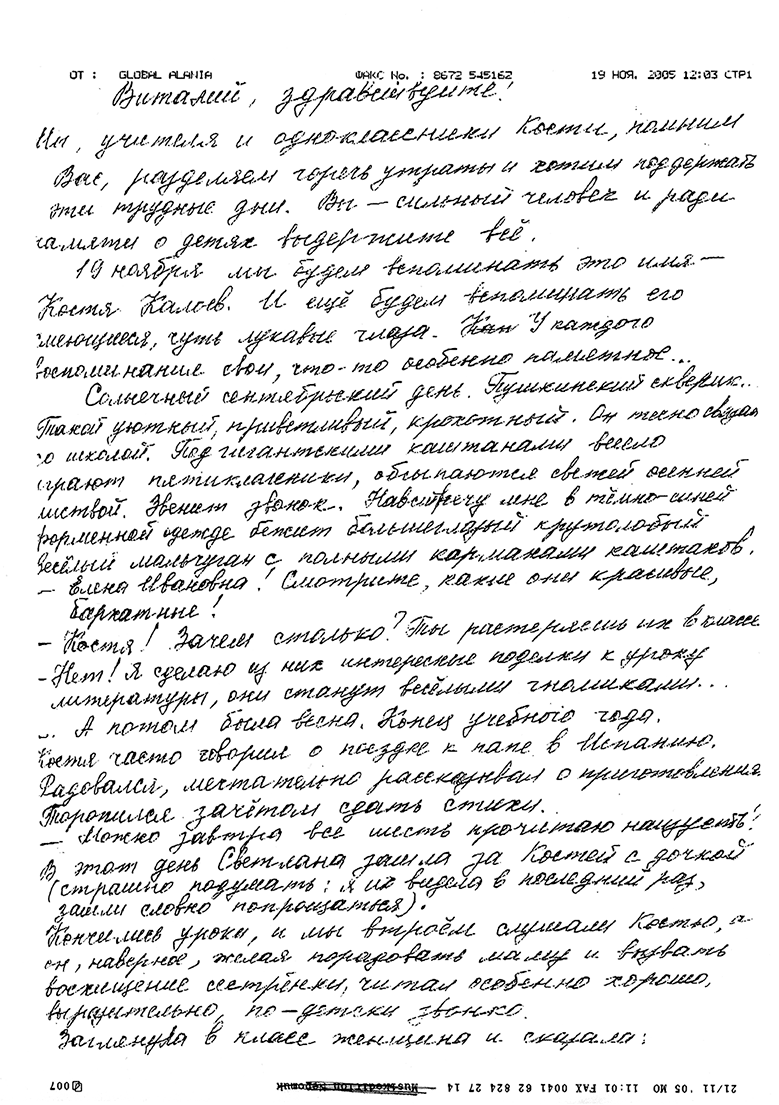 ОТ : GLOBAL ALANIA ФАКС No. : 8672 545162 19 НОЯ. 2005 12:03 СТР1
Виталий, здравствуйте!
Мы, учителя и одноклассники Кости, помним
Вас, разделяем горечь утраты и хотим поддержать
эти трудные дни. Вы – сильный человек и ради
памяти о детях выдержите всё.
19 ноября мы будем вспоминать это имя –
Костя Калоев. И ещё будем вспоминать его
смеющиеся, чуть лукавые глаза. У каждого
воспоминание свои, что-то особенно памятное...
Солнечный сентябрьский день. Пушкинский скверик..
Такой уютный, приветливый, крохотный. Он тесно связан
со школой. Под гигантскими каштанами весело
играют пятиклассники, обсыпаются свежей осенней
листвой. Звенит звонок. Навстречу мне в тёмно-синей
форменной одежде бежит большеглазый крутолобый
весёлый мальчуган с полными карманами каштанов.
– Елена Ивановна! Смотрите, какие они красивые,
бархатные!
– Костя! Зачем столько? Ты растеряешь их в классе
– Нет! Я сделаю из них интересные поделки к уроку
литературы, они станут весёлыми гномиками...
... А потом была весна. Конец учебного года.
Костя часто говорил о поездке к папе в Испанию.
Радовался, мечтательно рассказывал о приготовления
Торопился зачётом сдать стихи.
– Можно завтра все шесть прочитаю наизусть!
В этот день Светлана зашла за Костей с дочкой
(страшно подумать: я их видела в последний раз,
зашли словно попрощаться).
Кончились уроки, и мы втроём слушали Костю, а
он, наверное, желая порадовать маму и вызвать
восхищение сестрёнки, читал особенно хорошо,
выразительно, по-детски звонко.
Заглянула в класс женщина и сказала:
21/11 '05 MO 11:01 FAX 0041 62 824 27 14 007